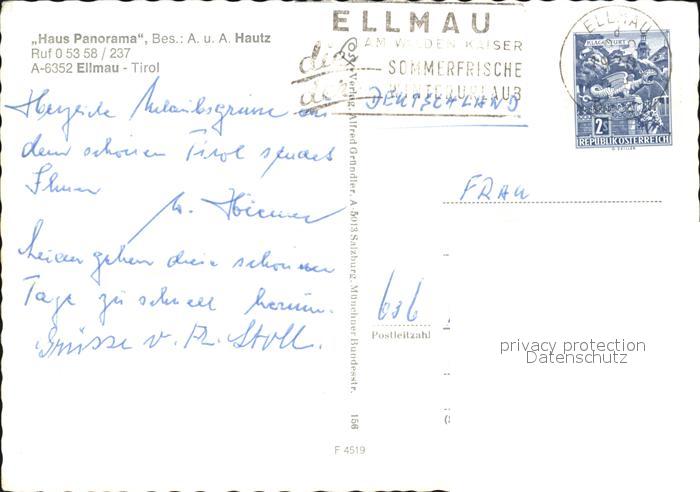 „Haus Panorama“, Bes.: A. u. A. Hautz
Ruf 0 53 58 / 237
A-6352 Ellmau - Tirol
ELLMAU
AM WILDEN KAISER
SOMMERFRISCHE
WINTERURLAUB
ELLMAU
KLAGENFURT
2S
REPUBLIK ÖSTERREICH
Herzliche Urlaubsgrüsse aus
dem schönen Tirol sendet
Ihnen
Leider gehen diese schönen
Tage zu schnell herum.
Grüsse v. Fr. Stoll.
Verlag Alfred Gründler, A-5013 Salzburg, Münchner Bundesstr. 156
DEUTSCHLAND
FRAU
636
Postleitzahl
privacy protection
Datenschutz
F 4519